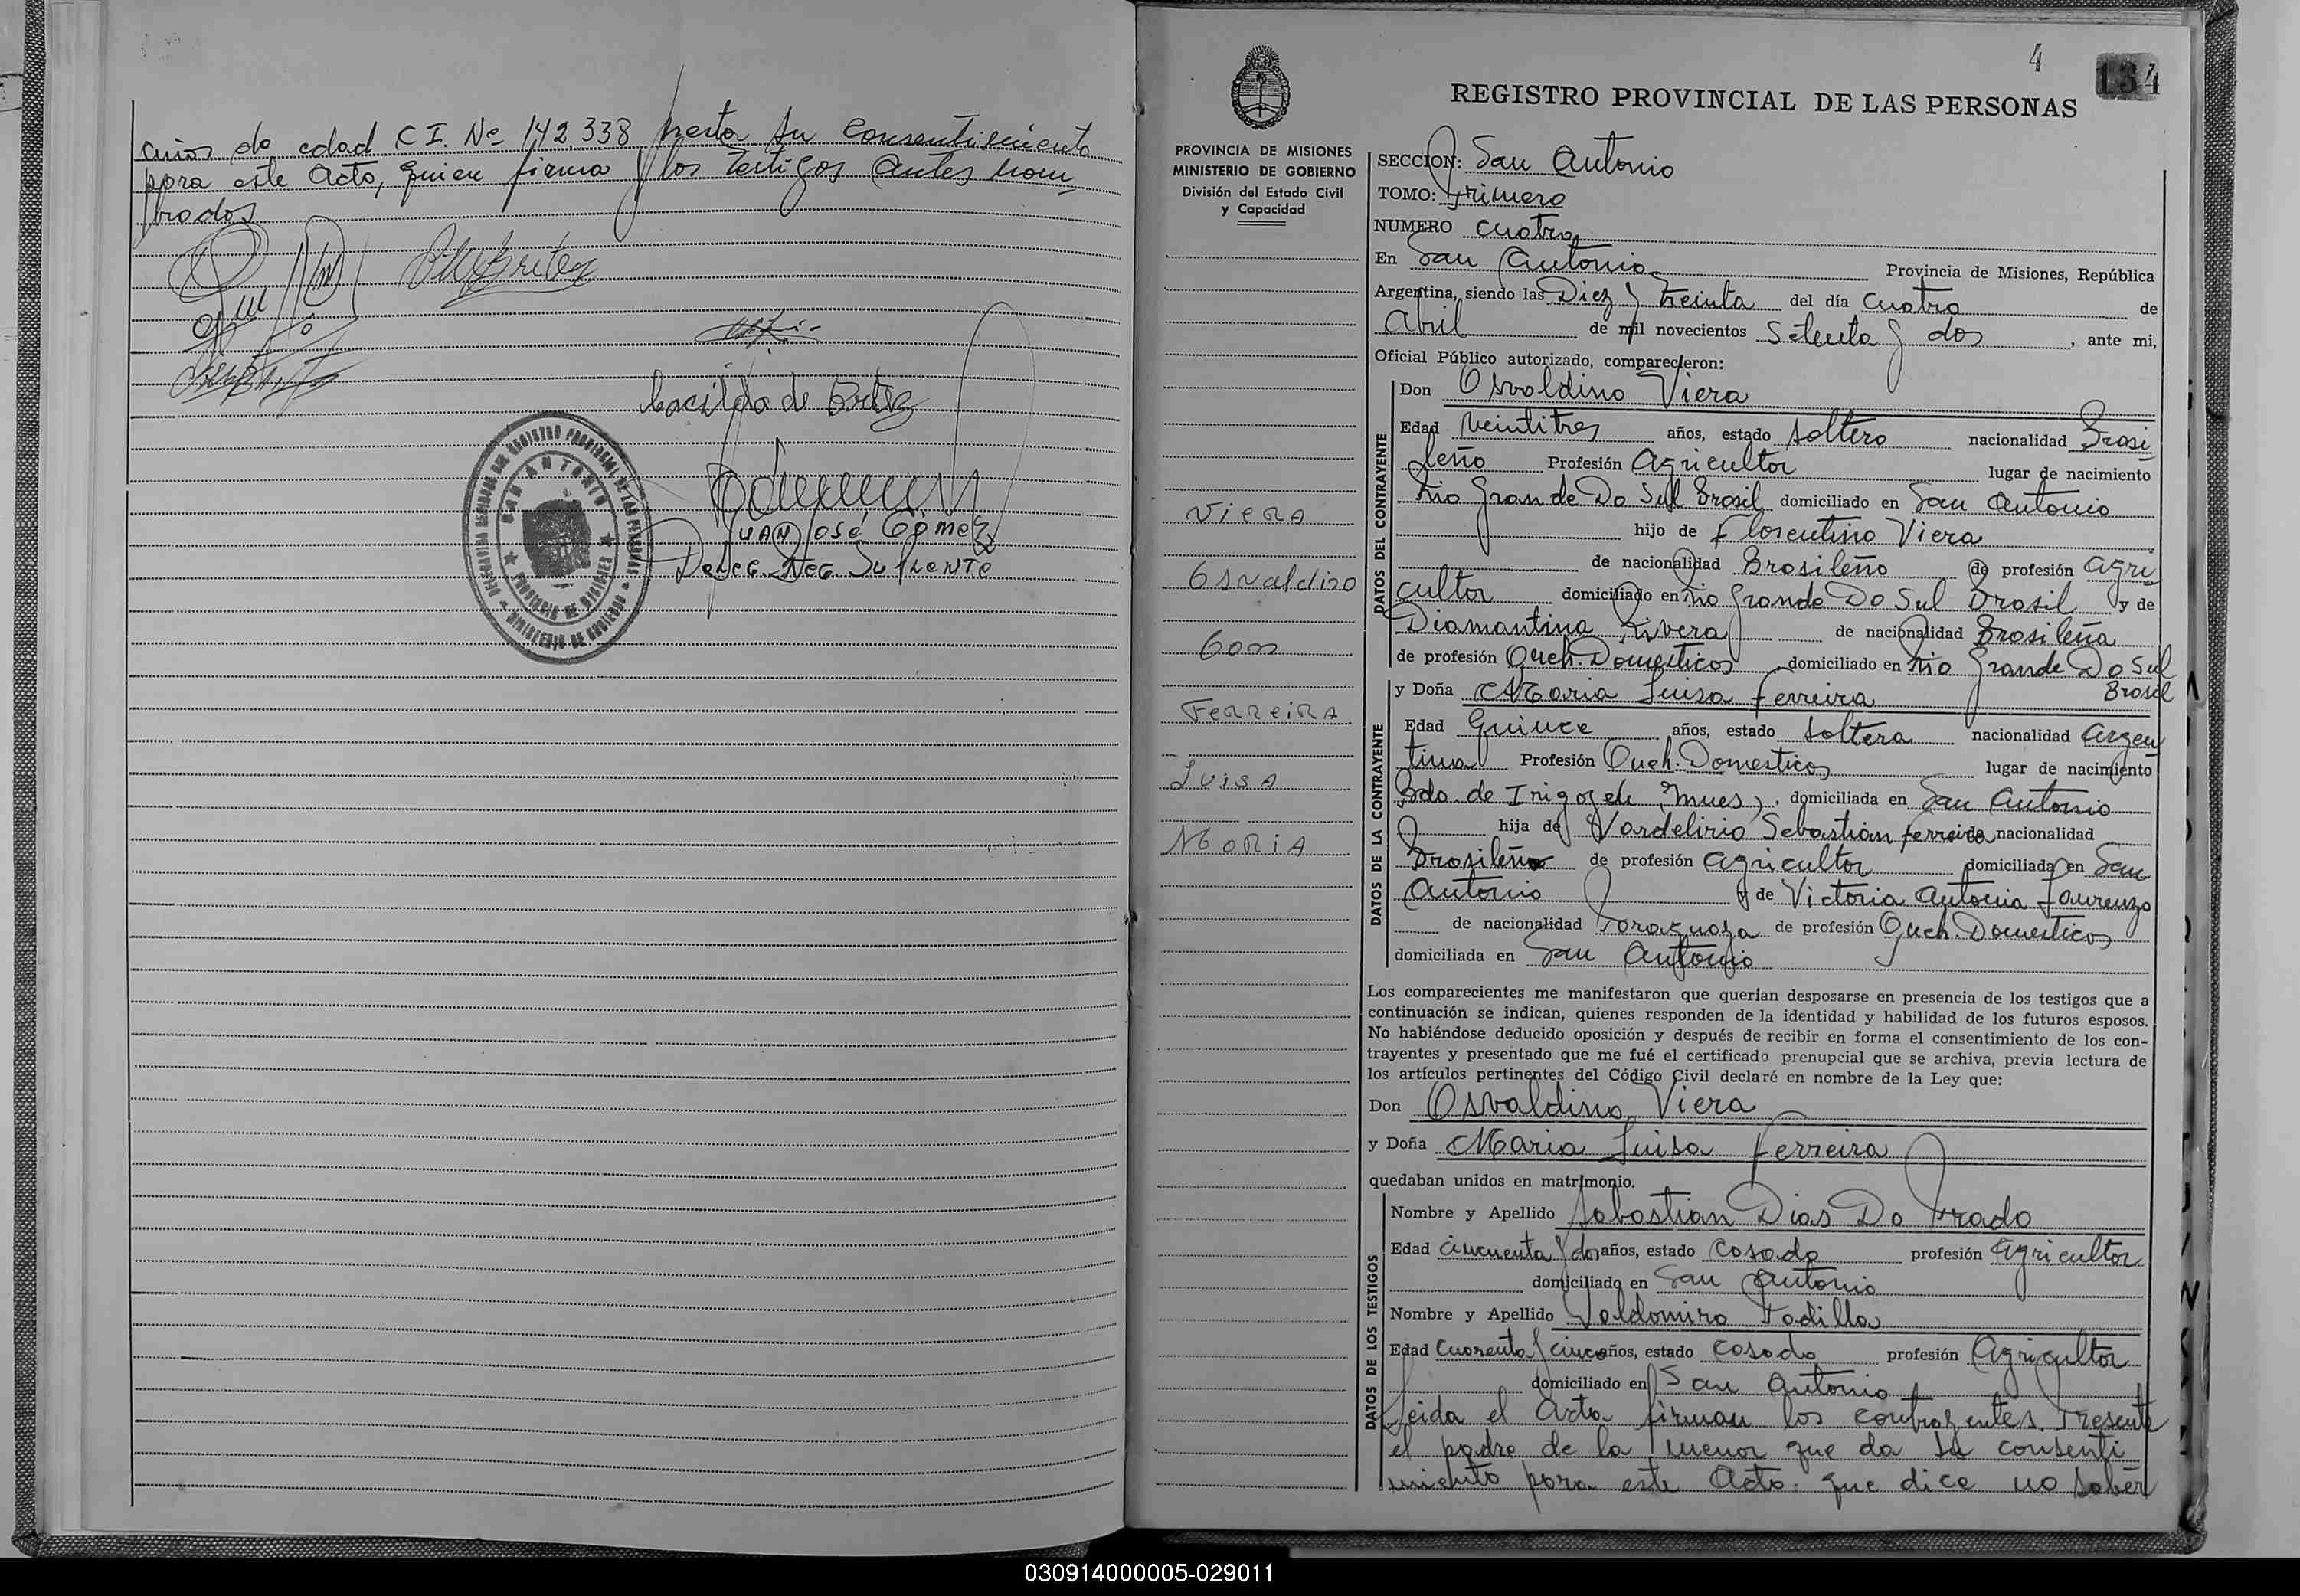 años de edad C I. Nº 142338 presta su Consentimiento
para este Acto, quien firma y los testigos antes nom_
brados
Cacilda de Ortiz
JUAN JOSÉ GÓMEZ
DELEG. REG. SUPLENTE
SAN ANTONIO
PROVINCIA DE MISIONES
MINISTERIO DE GOBIERNO
4
134
REGISTRO PROVINCIAL DE LAS PERSONAS
PROVINCIA DE MISIONES
MINISTERIO DE GOBIERNO
División del Estado Civil
y Capacidad
VIERA
Osvaldino
Con
FERREIRA
LUISA
MARIA
SECCION: San Antonio
TOMO: Primero
NUMERO cuatro
En San Antonio Provincia de Misiones, República
Argentina, siendo las Diez y treinta del día cuatro de
Abril de mil novecientos Setenta y dos, ante mi,
Oficial Público autorizado, comparecieron:
DATOS DEL CONTRAYENTE
Don Osvaldino Viera
Edad veintitres años, estado soltero nacionalidad Brasi
leño Profesión Agricultor lugar de nacimiento
Rio Grande Do Sul Brasil domiciliado en San Antonio
hijo de Florentino Viera
de nacionalidad Brasileño de profesión Agri
cultor domiciliado en Rio Grande Do Sul Brasil y de
Diamantina Rivera de nacionalidad Brasileña
de profesión Queh. Domesticos domiciliado en Rio Grande Do Sul
Brasil
DATOS DE LA CONTRAYENTE
y Doña Maria Luisa Ferreira
Edad Quince años, estado soltera nacionalidad Argen
tina Profesión Queh. Domesticos lugar de nacimiento
Bdo. de Irigoyen (Mnes), domiciliada en San Antonio
hija de Vardelirio Sebastian Ferreira nacionalidad
Brasileño de profesión Agricultor domiciliada en San
Antonio y de Victoria Antonia Lourenzo
de nacionalidad Paraguaya de profesión Queh. Domesticos
domiciliada en San Antonio
Los comparecientes me manifestaron que querían desposarse en presencia de los testigos que a
continuación se indican, quienes responden de la identidad y habilidad de los futuros esposos.
No habiéndose deducido oposición y después de recibir en forma el consentimiento de los con-
trayentes y presentado que me fué el certificado prenupcial que se archiva, previa lectura de
los artículos pertinentes del Código Civil declaré en nombre de la Ley que:
Don Osvaldino Viera
y Doña Maria Luisa Ferreira
quedaban unidos en matrimonio.
DATOS DE LOS TESTIGOS
Nombre y Apellido Sebastian Dias Do Prado
Edad cincuenta y dos años, estado Casado profesión Agricultor
domiciliado en San Antonio
Nombre y Apellido Valdomiro Padilla
Edad Cuarenta y cinco años, estado Casado profesión Agricultor
domiciliado en San Antonio
Leida el Acta firman los contrayentes. Presente
el padre de la menor que da su consenti
miento para este Acto. que dice no saber
030914000005-029011